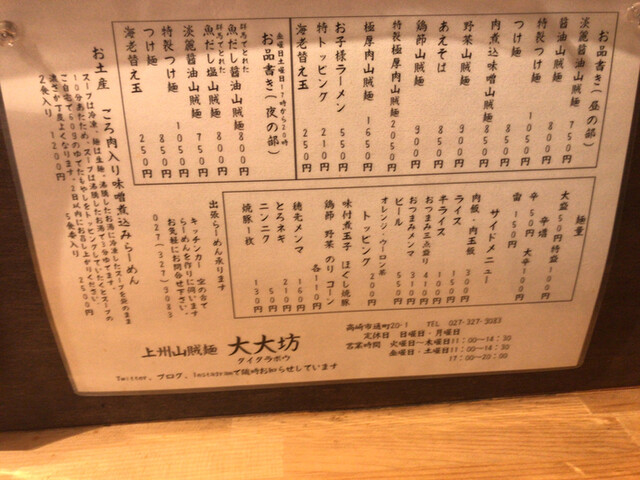 お品書き(昼の部)
淡麗醤油山賊麺 750円
醤油山賊麺 800円
特製つけ麺 1050円
つけ麺 850円
肉煮込味噌山賊麺 850円
野菜山賊麺 900円
鶏節山賊麺
あえそば
特製極厚肉山賊麺 2050円
極厚肉山賊麺 1650円
お子様ラーメン 550円
特トッピング 210円
海老替え玉 250円
金曜日土曜日17時から20時
お品書き(夜の部)
魚だし醤油山賊麺 800円
魚だし塩山賊麺 800円
淡麗醤油山賊麺 750円
特製つけ麺 1050円
つけ麺 850円
海老替え玉 250円
お土産 ごろ肉入り味噌煮込みらーめん
2食入り 1200円
5食入り 2600円
麺量
大盛50円 特盛100円
辛増
辛50円 大辛100円
宙150円
サイドメニュー
肉飯・肉玉飯 300円
ライス 150円
半ライス 100円
おつまみ三点盛り 410円
おつまみメンマ 310円
ビール 550円
オレンジ・ウーロン茶 200円
トッピング
味付煮玉子 ほぐし焼豚
鶏節 野菜 のり コーン
各110円
穂先メンマ 160円
とろネギ 210円
ニンニク 50円
焼豚1枚 130円
出張らーめん承ります
キッチンカー 空の台で
らーめんを作りに伺います。
お気軽にお問合せ下さい。
027(327)3083
上州山賊麺 大大坊
ダイダラボウ
Twitter、ブログ、Instagramで随時お知らせしています
高崎市通町20-1 TEL 027-327-3083
定休日 日曜日・月曜日
営業時間 火曜日〜木曜日11:00〜14:30
金曜日・土曜日11:00〜14:30
17:00〜20:00